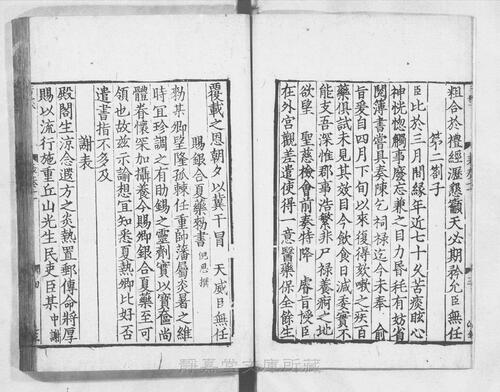 粗合於禮經瀝懇籲天必期矜允臣無任
第二劄子
臣比於三月間緣年近七十久苦痰眩心
神恍惚觸事廢忘兼之目力昏耗有妨省
閱薄書嘗具奏陳乞祠祿迄今未奉俞
旨爰自四月下旬以來復得欬嗽之疾百
藥俱試未見其效目今飲食日減委實不
能支吾深惟郡事浩繁非尸祿養痾之地
欲望聖慈檢會前奏特降睿旨授臣
在外宮觀差遣使得一意醫藥保全餘生
覆載之恩朝夕以冀干冒天威臣無任
賜銀合夏藥勑書
勑某卿望隆孤棘任重師藩屬炎暑之維
時宜珍調之有助錫之靈劑實以寶奩尚
體眷懷深加攝養今賜卿銀合夏藥至可
領也故茲示諭想宜知悉夏熱卿比好否
遣書指不多及
謝表
殿閣生涼念遐方之炎熱置郵傳命將厚
賜以流行施重丘山光生民吏臣某中謝
靜嘉堂文庫所藏